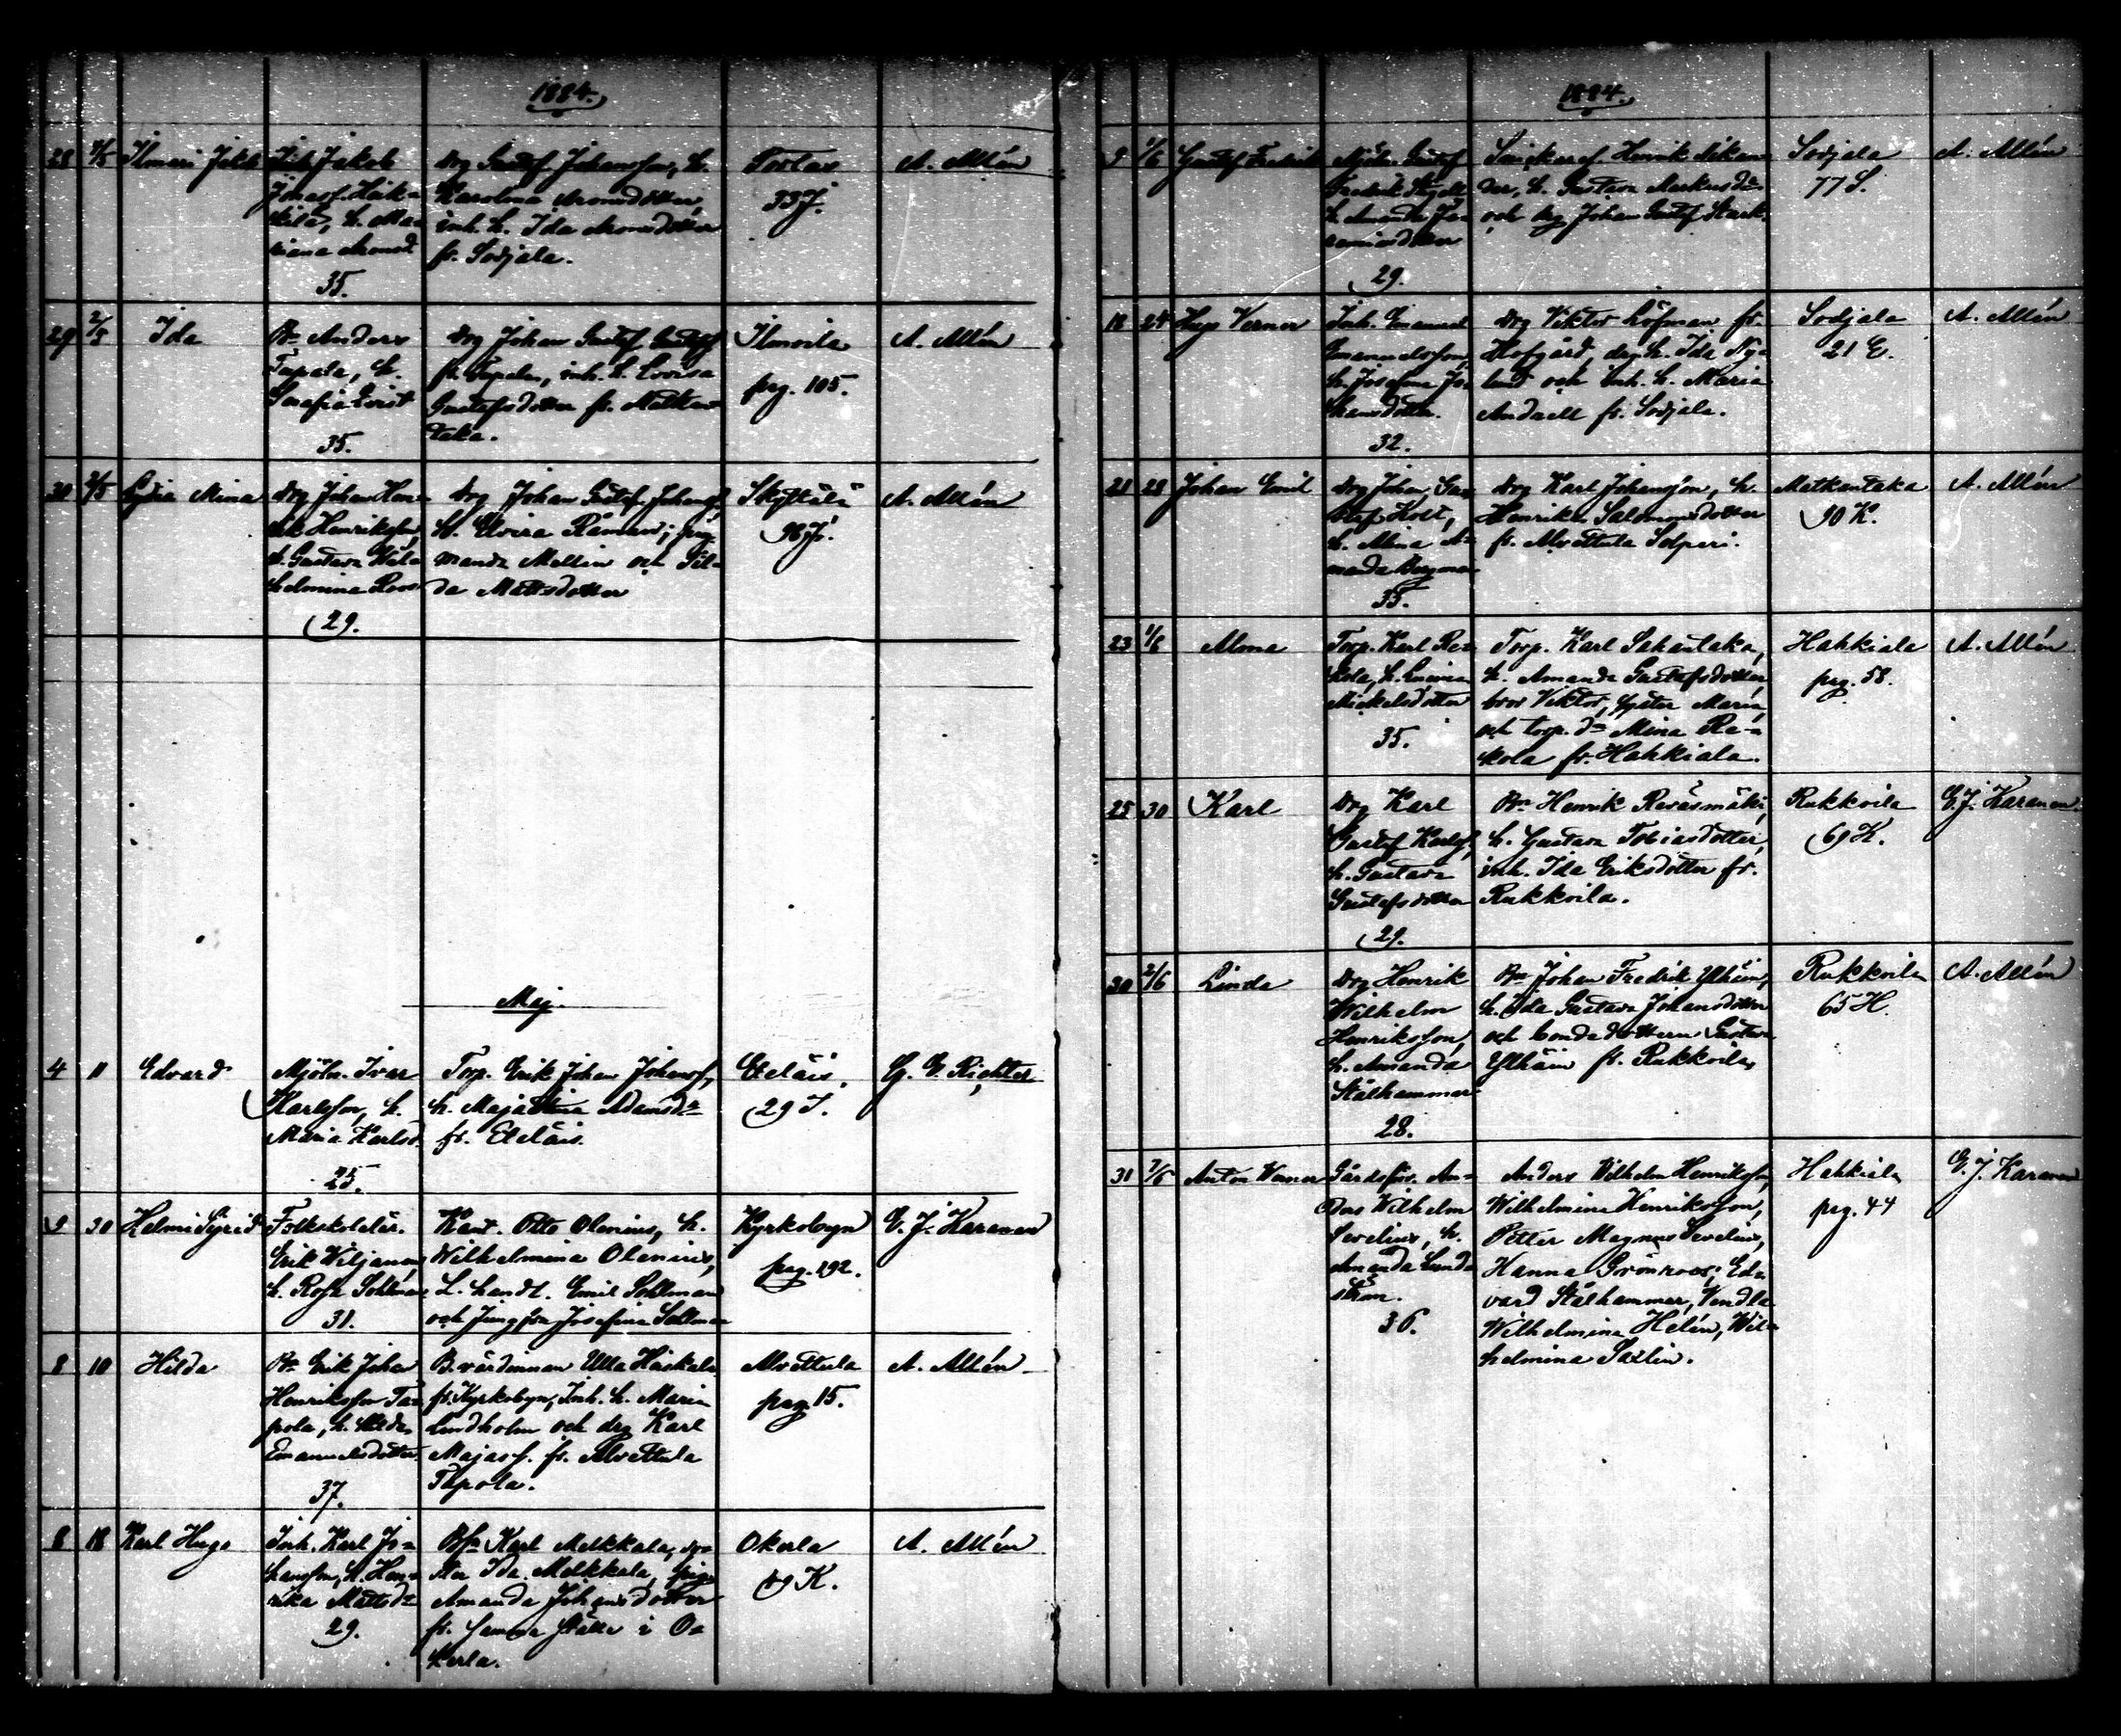 1884.
28 2/5 Ilmari Jakob
Inh Jakob
Jonasf. Heik-
kilä, h. Ma-
riana Aronsd
35.
Drg Gustaf Johansson, h.
Karolina Aronsdotter,
inh. h. Ida Aronsdotter
fr. Sodjala.
Torlax
33 J.
A. Allén
29 2/5 Ida
Bn Anders
Tupala, h.
Serafia Qvist
35.
Drg Johan Gustaf Gustafsf
fr. Tupala, inh. h. Lovisa
Gustafsdotter fr. Matkan-
taka.
Ilmoila
pag. 105.
A. Allén
30 2/5 Lydia Mina
Drg Johan Hen-
rik Henriksson,
h. Gustava Wil-
helmina Roos
29.
Drg Johan Gustaf Johansf,
h. Elvira Råman; pig.
Manda Mellin och Hil-
da Mattsdotter
Skyttälä
98 J.
A. Allén
Maj.
4 11 Edvard
Mjöln. Ivar
Karlsson, h.
Maria Karlsd.
25.
Torp. Erik Johan Johansf,
h. Maja Stina Adamsdr
fr. Eteläis.
Eteläis.
29 J.
G. E. Richter
9 30 Helmi Sigrid
Folkskolelär.
Erik Wiljanen
h. Rosa Sohlman
31.
Kant. Otto Olenius, h.
Wilhelmina Olenius,
L. handl. Emil Sohlman
och Jungfru Josefina Sohlman
Kyrkobyn
pag. 192.
E. J. Karanen
8 10 Hilda
Bn Erik Johan
Henriksson Ta-
pola, h. Hilda
Emanuelsdotter
37.
B. värdinnan Ulla Haskala
fr. Kyrkobyn, Inh. h. Maria
Lindholm och drg Karl
Majasf. fr. Alvettula
Tapola.
Alvettula
pag. 15.
A. Allén
8 18 Karl Hugo
Inh. Karl Jo-
hansson, h. Hen-
rika Mattsdr
29.
Bs. Karl Melkkala, sy-
ster Ida Melkkala, pig.
Amanda Johansdotter
fr. samma ställe i O-
kerla.
Okerla
19 K.
A. Allén
1884.
9 1/6 Gustaf Fredrik
Mjöln. Gustaf
Fredrik
h. Amanda Je-
remiasdotter
29.
Snickaref. Henrik Nikan-
der, h. Gustava Markusdr
och drg Johan Gustaf Stark.
Sodjala
77 S.
A. Allén
18 24 Hugo Verner
Inh. Emanuel
Emanuelsson,
h. Josefina Jo-
hansdotter.
32.
Drg Viktor Löfman fr.
Hofgård, drg h. Ida Ny-
lund och inh. h. Maria
Andsell fr. Sodjala.
Sodjala
21 E.
A. Allén
21 28 Johan Emil
Drg Johan Gus-
taf Kost,
h. Alina A-
manda Bergman
35.
Drg Karl Johansson, h.
Henrika Salomonsdotter
fr. Alvettula Solperi.
Matkantaka
90 K.
A. Allén
23 1/6 Alma
Torp. Karl Re-
kola, h. Lovisa
Mickelsdotter
35.
Torp. Karl Sahantaka,
h. Amanda Gustafsdotter,
bror Viktor, syster Maria,
och torp. dr Mina Re-
kola fr. Hahkiala.
Hahkiala
pag. 58.
A. Allén
25 30 Karl
Drg Karl
Gustaf Karlsf,
h. Gustava
Gustafsdotter
29.
Bn Henrik Resäsmäki,
h. Gustava Tobiasdotter,
inh. Ida Eriksdotter fr.
Rukkoila.
Rukkoila
69 K.
E. J. Karanen
30 2/6 Linda
Drg Henrik
Wilhelm
Henriksson,
h. Amanda
Stålhammar
28.
Bn Johan Fredrik Ylhäin,
h. Ida Gustava Johansdotter
och bondedottern Gustava
Ylhäin fr. Rukkoila
Rukkoila
65 H.
A. Allén
31 7/6 Anton Werner
Gårdsfor. An-
ders Wilhelm
Sevelius, h.
Amanda Lund-
ström.
36.
Anders Wilhelm Henriksson,
Wilhelmina Henriksson,
Petter Magnus Sevelius,
Hanna Grönroos; Ed-
vard Stålhammar, Vendla
Wilhelmina Helén, Wil-
helmina Saxlin.
Hahkiala
pag. 44
E. J. Karanen